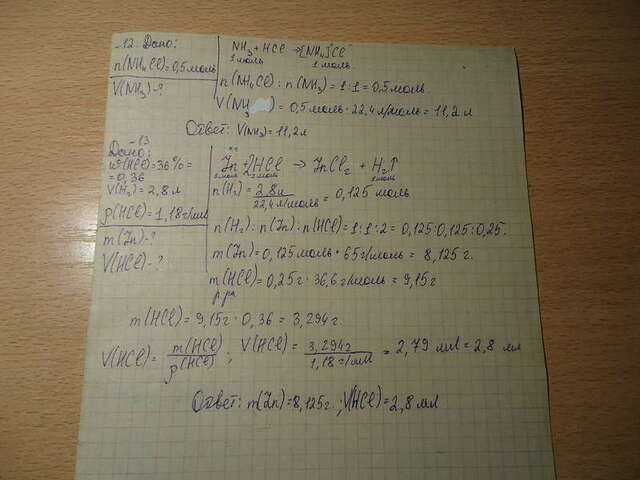 12. Дано:
n(NH₄Cl)=0,5моль
V(NH₃)-?
NH₃+HCl→[NH₄]Cl
1моль 1моль
n(NH₄Cl):n(NH₃)=1:1=0,5моль.
V(NH₃)=0,5моль·22,4л/моль=11,2л
Ответ: V(NH₃)=11,2л
13
Дано:
w(HCl)=36%=
=0,36
V(H₂)=2,8л
ρ(HCl)=1,18г/мл
m(Zn)-?
V(HCl)-?
Zn+2HCl→ZnCl₂+H₂↑
1моль 2моль 1моль
n(H₂)=2,8л/22,4л/моль=0,125моль
n(H₂):n(Zn):n(HCl)=1:1:2=0,125:0,125:0,25.
m(Zn)=0,125моль·65г/моль=8,125г.
m(HCl)=0,25г·36,6г/моль=9,15г
р.ра
m(HCl)=9,15г·0,36=3,294г.
V(HCl)=m(HCl)/ρ(HCl); V(HCl)=3,294г/1,18г/мл=2,79мл=2,8мл
Ответ: m(Zn)=8,125г.; V(HCl)=2,8мл